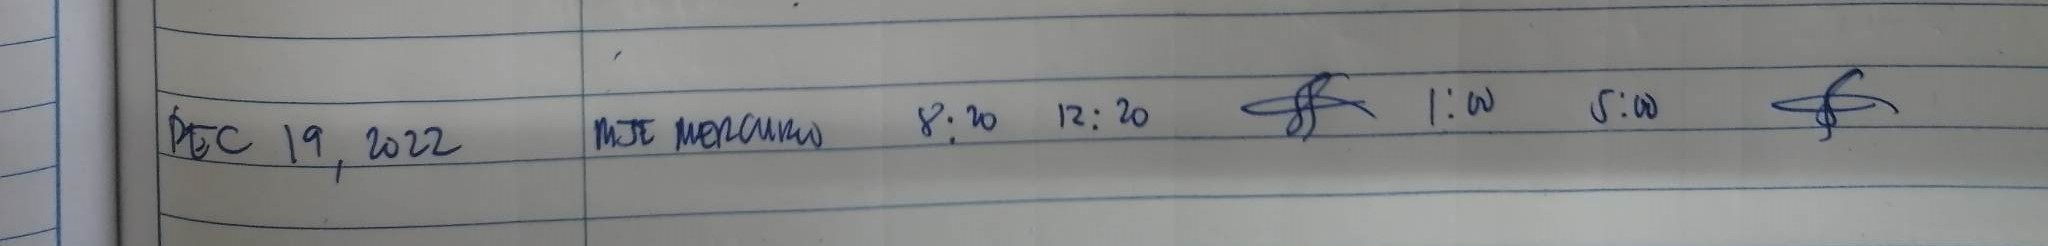 DEC 19, 2022 MJE MERCURIO 8:20 12:20 1:00 5:00